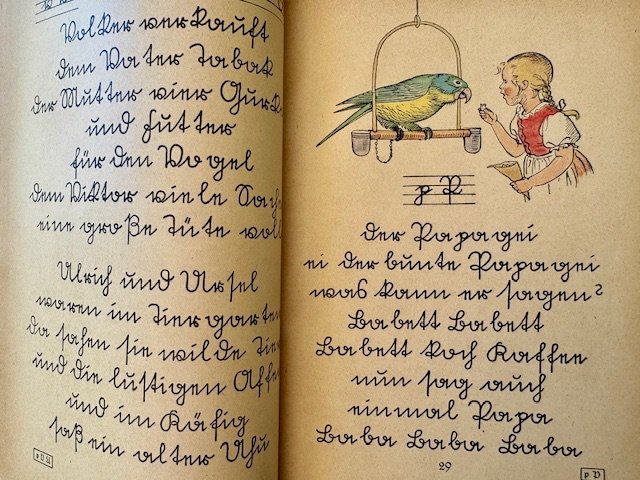 Volker verkauft
dem Vater Tabak
der Mutter vier
und Futter
für den Vogel
dem Viktor viele
eine große Tüte
Ulrich und Ursel
waren im Tiergarten
da sahen sie wilde
und die lustigen
und im Käfig
saß ein alter Uhu
p P
der Papagei
ei der bunte Papagei
was kann er sagen?
Babett Babett
Babett koch Kaffee
nun sag auch
einmal Papa
Baba Baba Baba
29